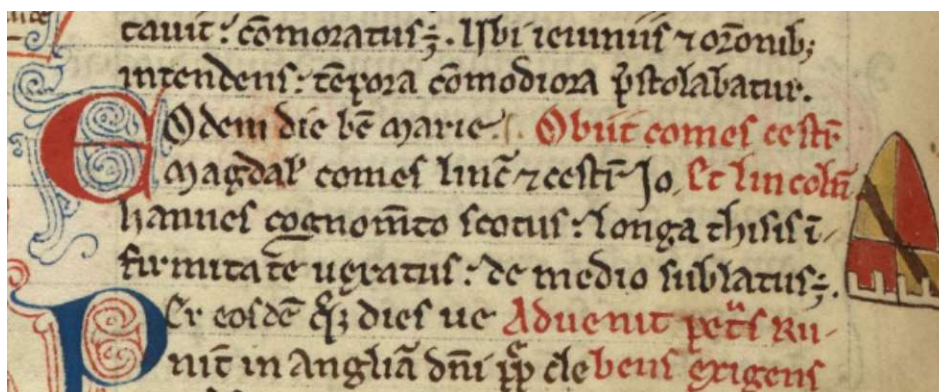 tauit: cōmoratus÷. Ibi ieiuniis ⁊ or̄onib;
intendens: tēpora cōmodiora p̄stolabatur.
EOdem die bē marie. Obiit comes cestr̄
magdal' comes linc̄ ⁊ cestr̄ Jo Et lincoln̄
hannes cognom̄to scotus: longa thisis ī-
firmitate uexatus: de medio sublatus÷.
PEr eosdē q̄; dies ue Aduenit pet's Ru-
nit̄ in angliā dn̄i pp̄ cle bens exigens